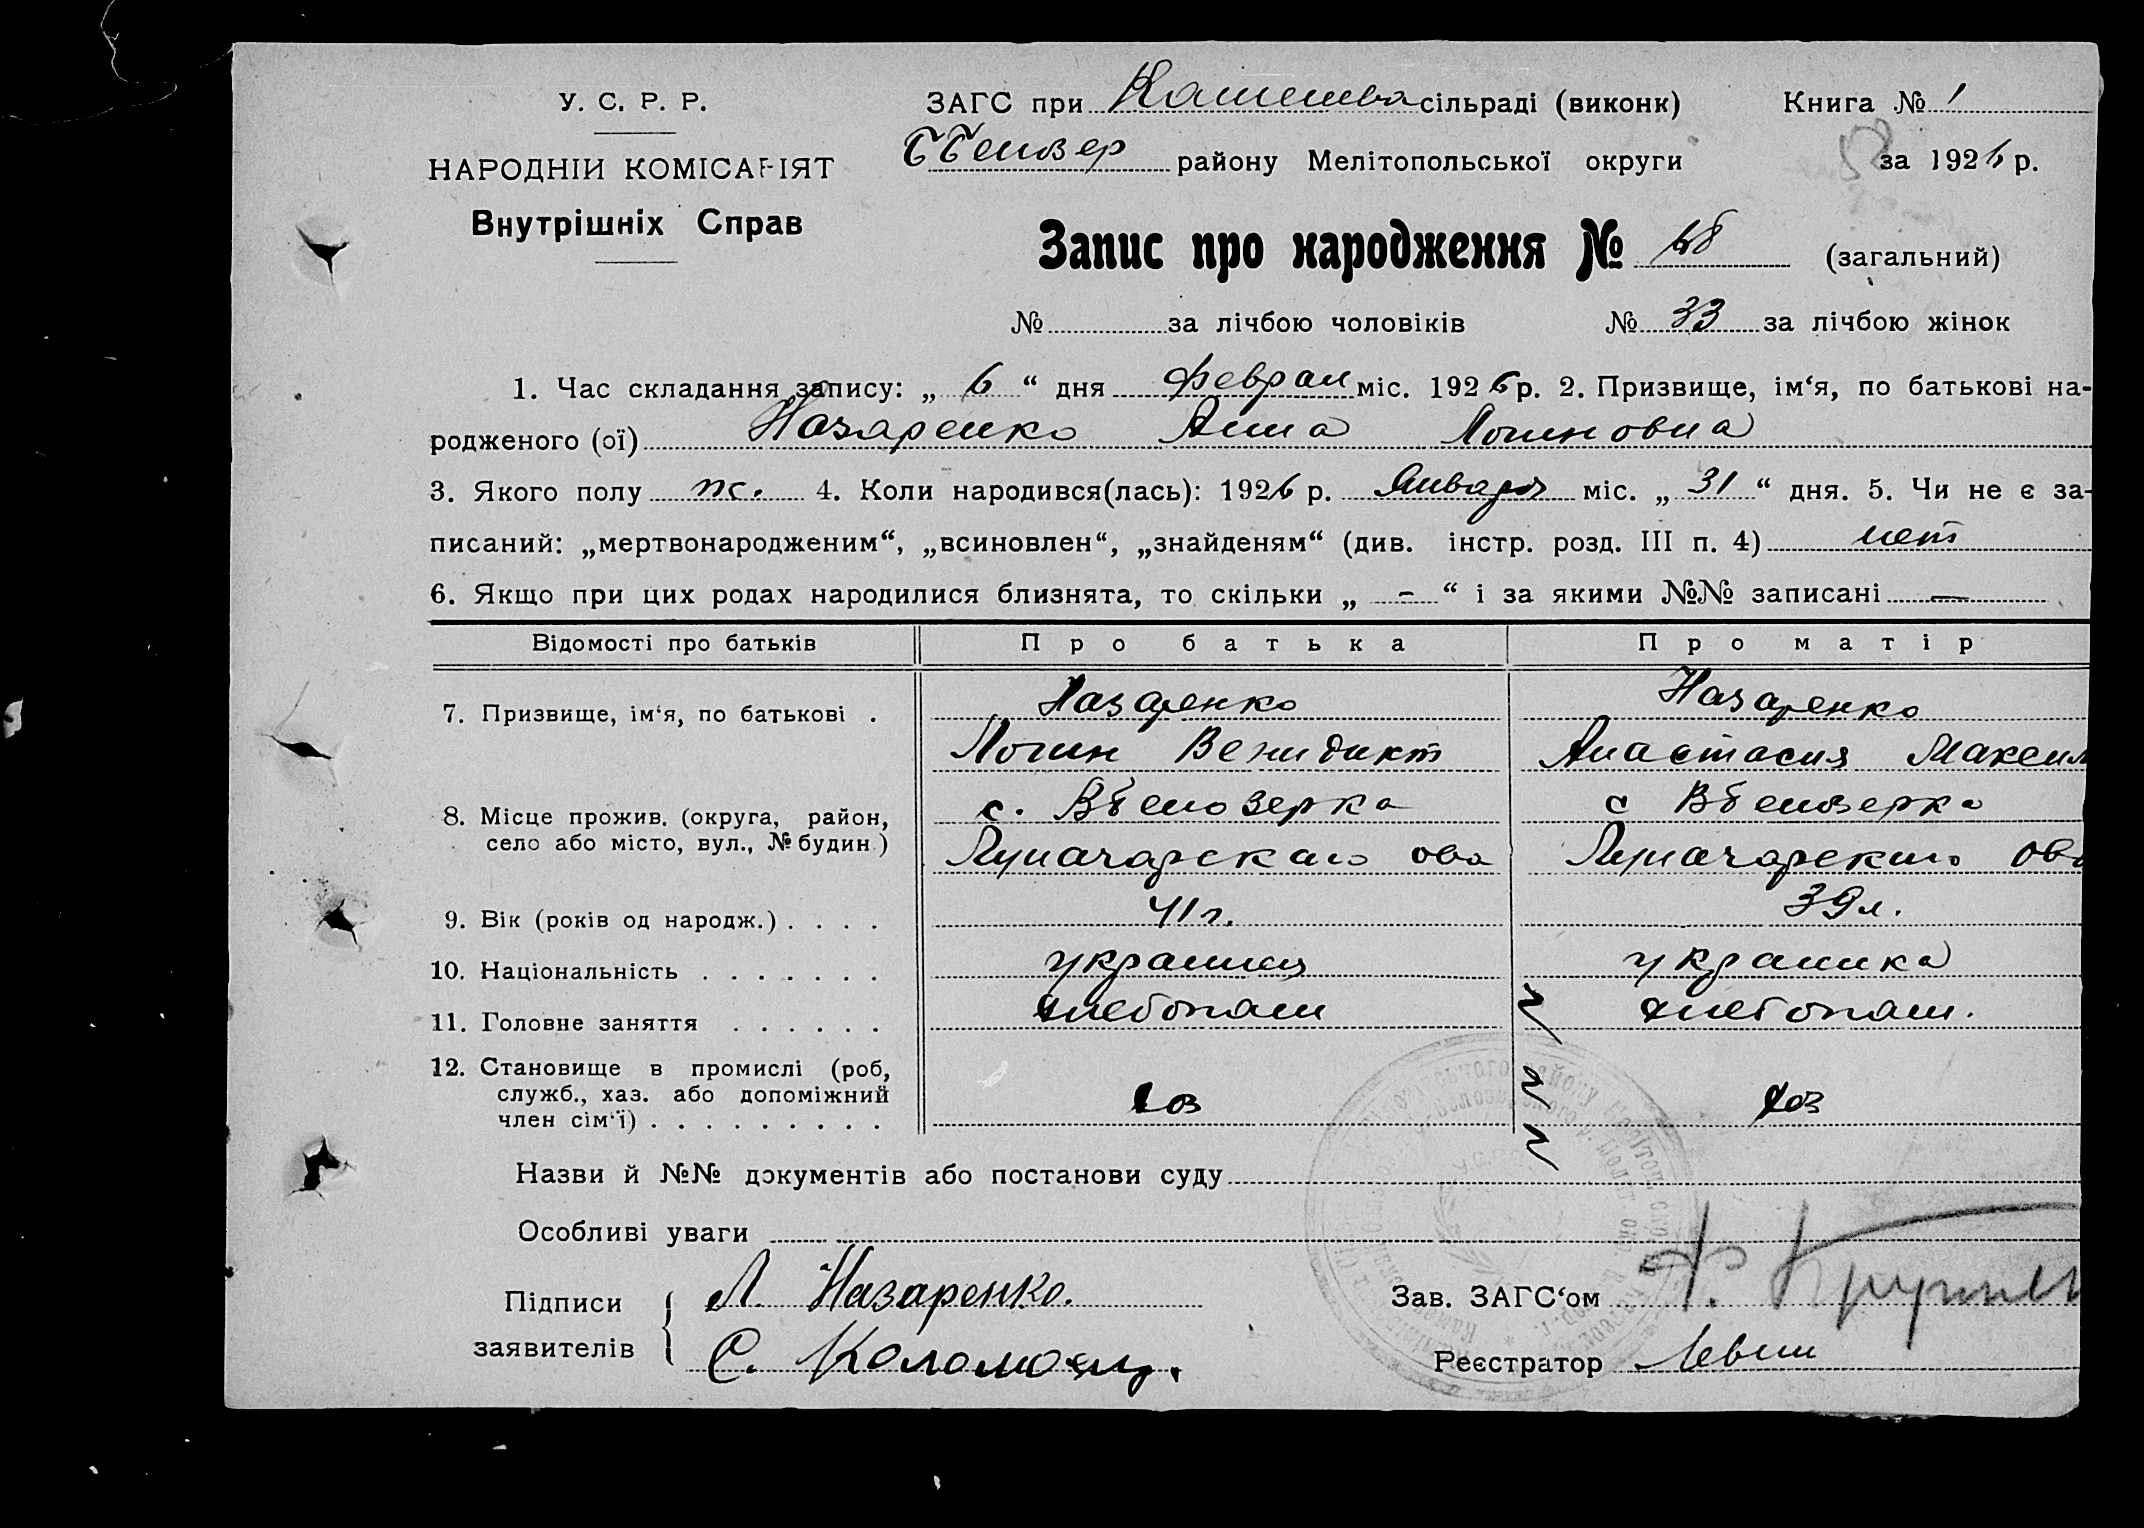 У. С. Р. Р.
НАРОДНІЙ КОМІСАРІЯТ
Внутрішніх Справ
ЗАГС при сільраді (виконк) Книга № 1
району Мелітопольської округи за 1926 р.
Запис про народження № 68 (загальний)
№ за лічбою чоловіків № 33 за лічбою жінок
1. Час складання запису: „ 6 “ дня Феврал міс. 1926 р. 2. Призвище, ім‘я, по батькові на-
родженого (ої) Назаренко Анна Логиновна
3. Якого полу ж. 4. Коли народився(лась): 1926 р. Января міс. „ 31 “ дня. 5. Чи не є за-
писаний: „мертвонародженим“, „всиновлен“, „знайденям“ (див. інстр. розд. III п. 4) нет
6. Якщо при цих родах народилися близнята, то скільки „ - “ і за якими №№ записані —
Відомості про батьків Про батька Про матір
7. Призвище, ім‘я, по батькові . Назаренко Назаренко
Логин Венидикт Анастасия Максим
8. Місце прожив. (округа, район, с. Вбелозерка с Вбелозерка
село або місто, вул., № будин.) Луначарскаго ова Луначарскаго ова
9. Вік (років од народж.) . . . . 41 г. 39 л.
10. Національність . . . . . . . украинец украинка
11. Головне заняття . . . . . . хлебопаш хлебопаш.
12. Становище в промислі (роб,
служб., хаз. або допоміжний хоз хоз
член сім‘ї) . . . . . . . . .
Назви й №№ документів або постанови суду
Особливі уваги
Підписи Л. Назаренко. Зав. ЗАГС‘ом
заявителів С. Коломоец. Реєстратор Левин